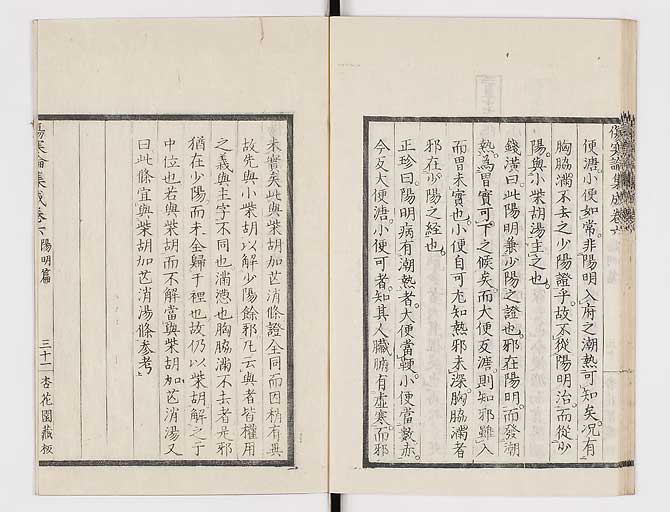 傷寒論集成卷六
便溏。小便如常。非陽明入府之潮熱可知矣。况有
胸脇滿不去之少陽證乎。故不從陽明治而從少
陽。與小柴胡湯主之也。
錢潢曰。此陽明兼少陽之證也。邪在陽明。而發潮
熱。為胃實可下之候矣。而大便反溏。則知邪雖入
而胃未實也。小便自可。尤知熱邪未深。胸脇滿者
邪在少陽之經也。
正珍曰。陽明病有潮熱者。大便當鞕。小便當數。赤。
今反大便溏。小便可者。知其人臟腑有虛寒。而邪
未實矣此與柴胡加芒消條證全同而因稍有異
故先與小柴胡以解少陽餘邪凡云與者皆權用
之義與主字不同也滿懣也胸脇滿不去者是邪
猶在少陽而未全歸于裡也故仍以柴胡解之于
中位也若與柴胡而不解當與柴胡加芒消湯又
曰此條宜與柴胡加芒消湯條參考
傷寒論集成卷六 陽明篇 三十一 杏花園藏板